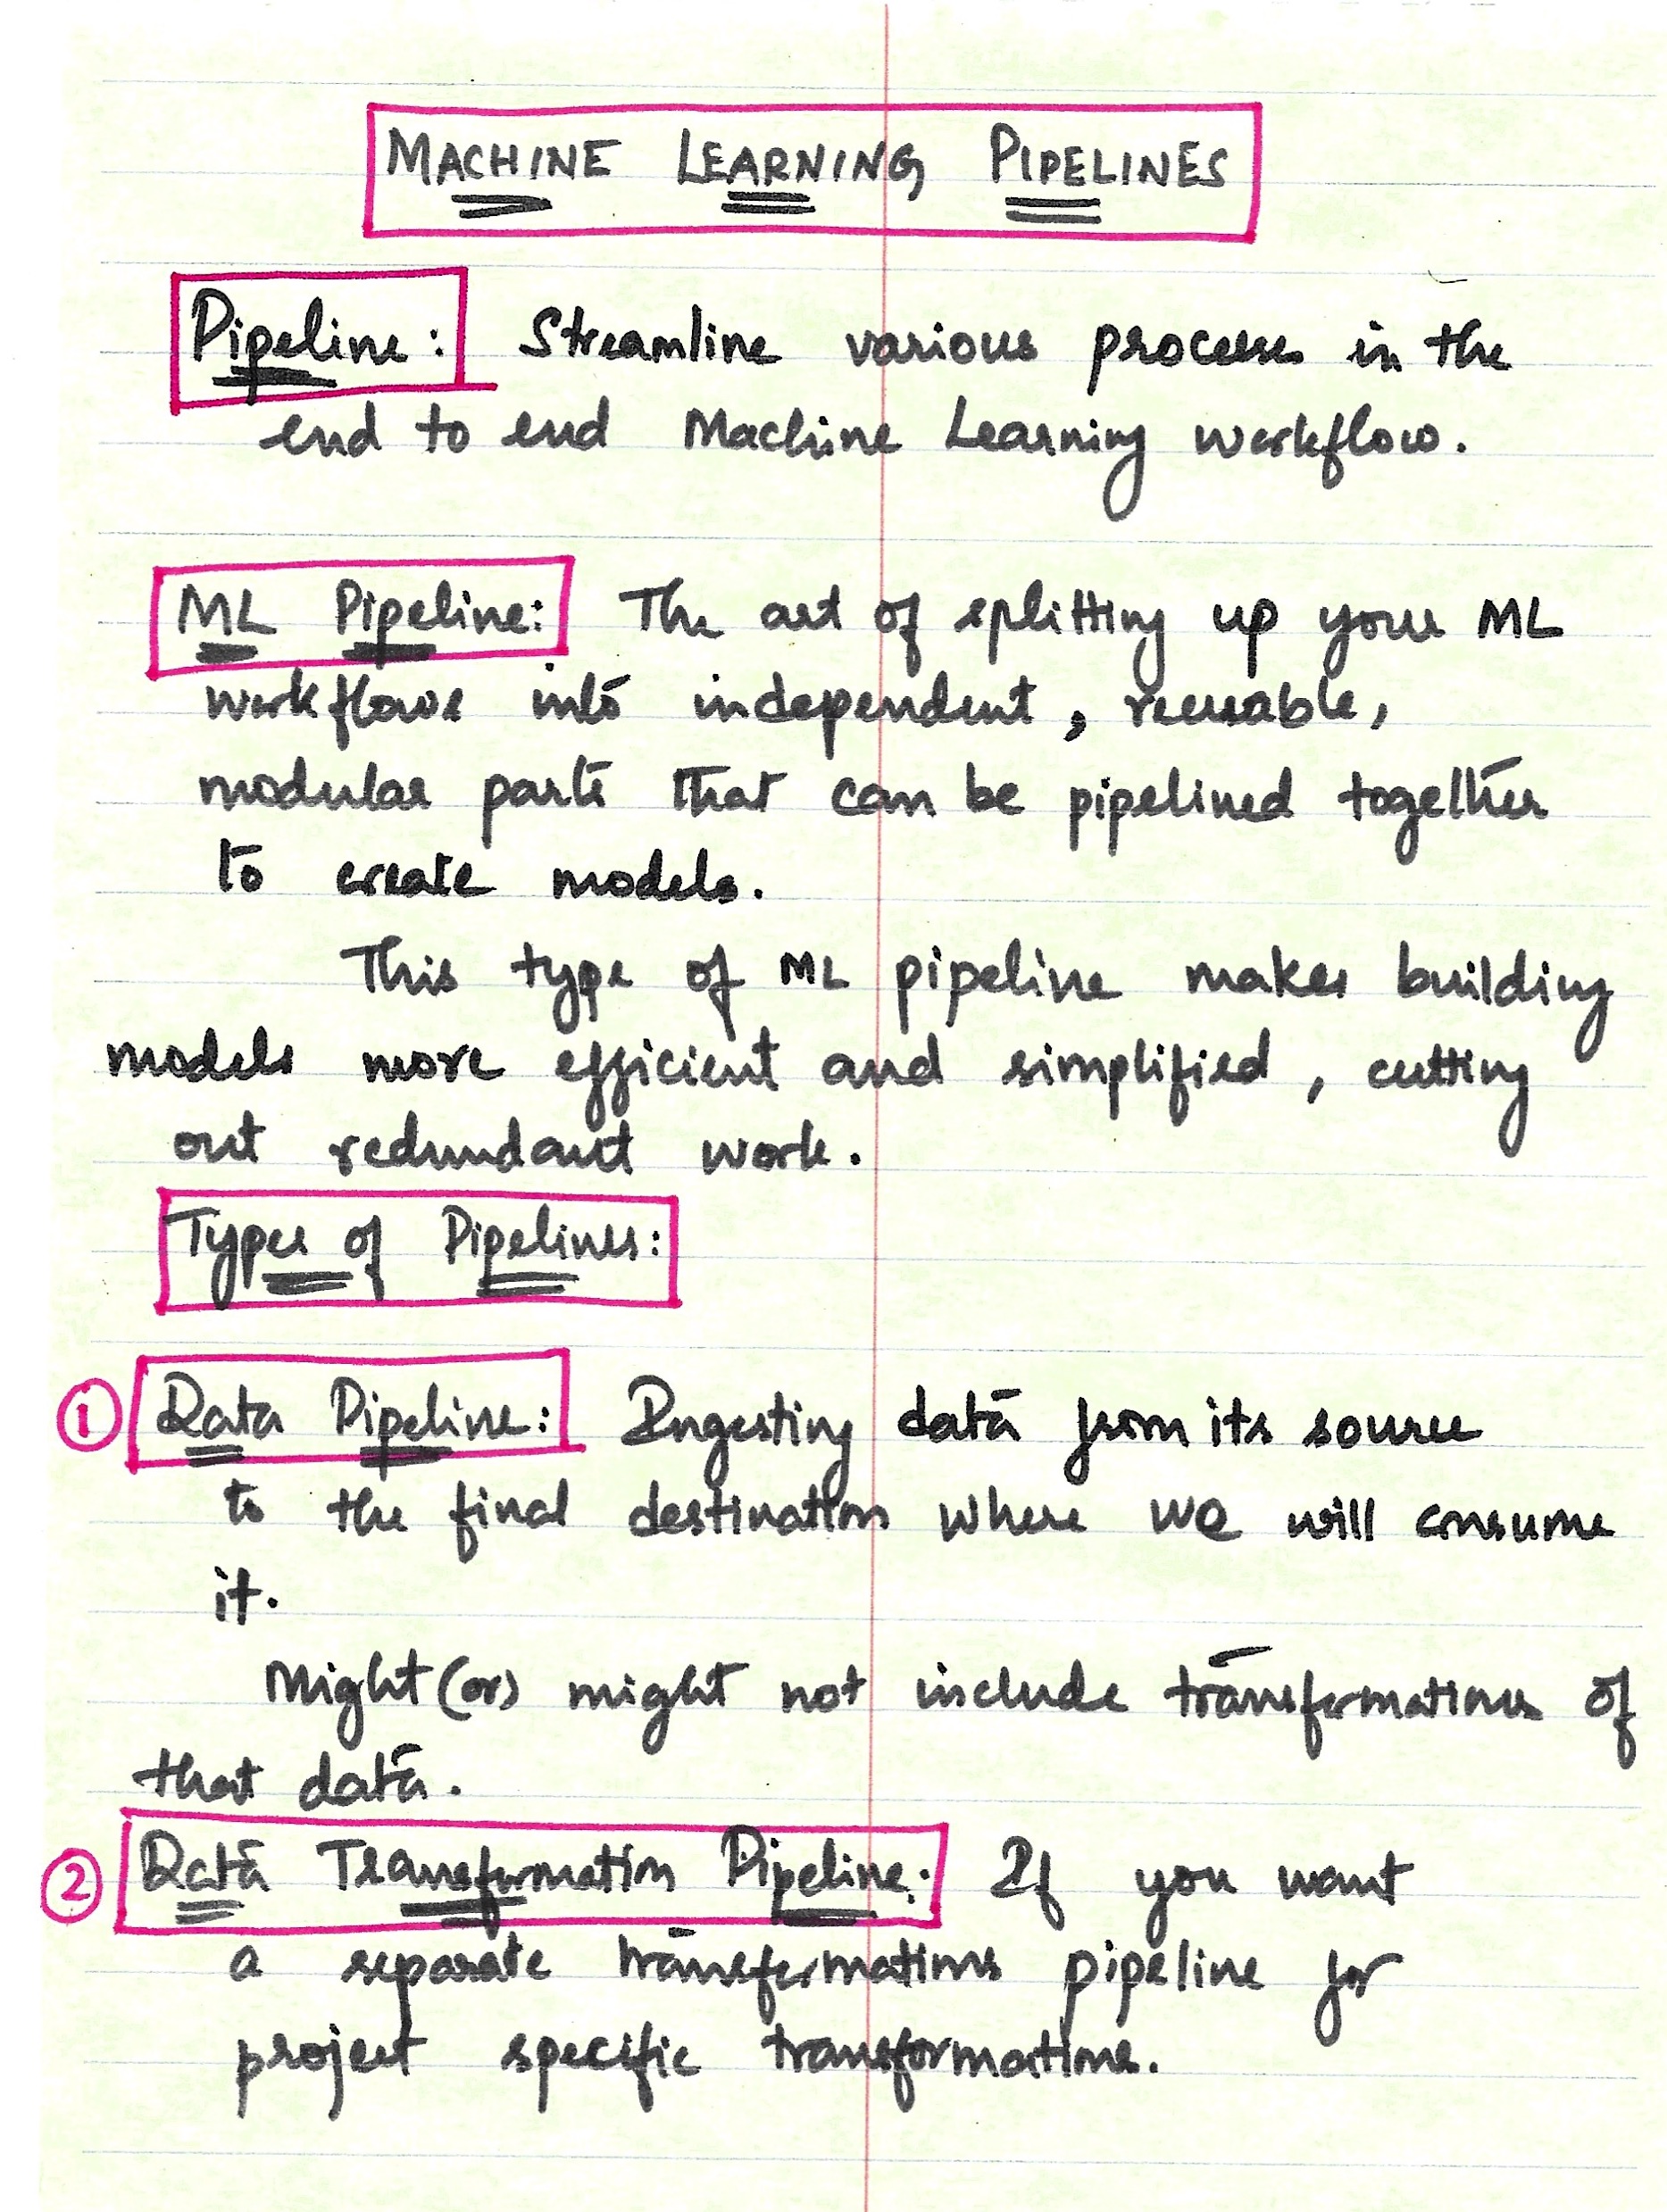 MACHINE LEARNING PIPELINES
Pipeline: Streamline various processes in the
end to end Machine Learning workflow.
ML Pipeline: The art of splitting up your ML
workflows into independent, reusable,
modular parts that can be pipelined together
to create models.
This type of ML pipeline makes building
models more efficient and simplified, cutting
out redundant work.
Types of Pipelines:
① Data Pipeline: Ingesting data from its source
to the final destination where we will consume
it.
Might (or) might not include transformations of
that data.
② Data Transformation Pipeline: If you want
a separate transformations pipeline for
project specific transformations.